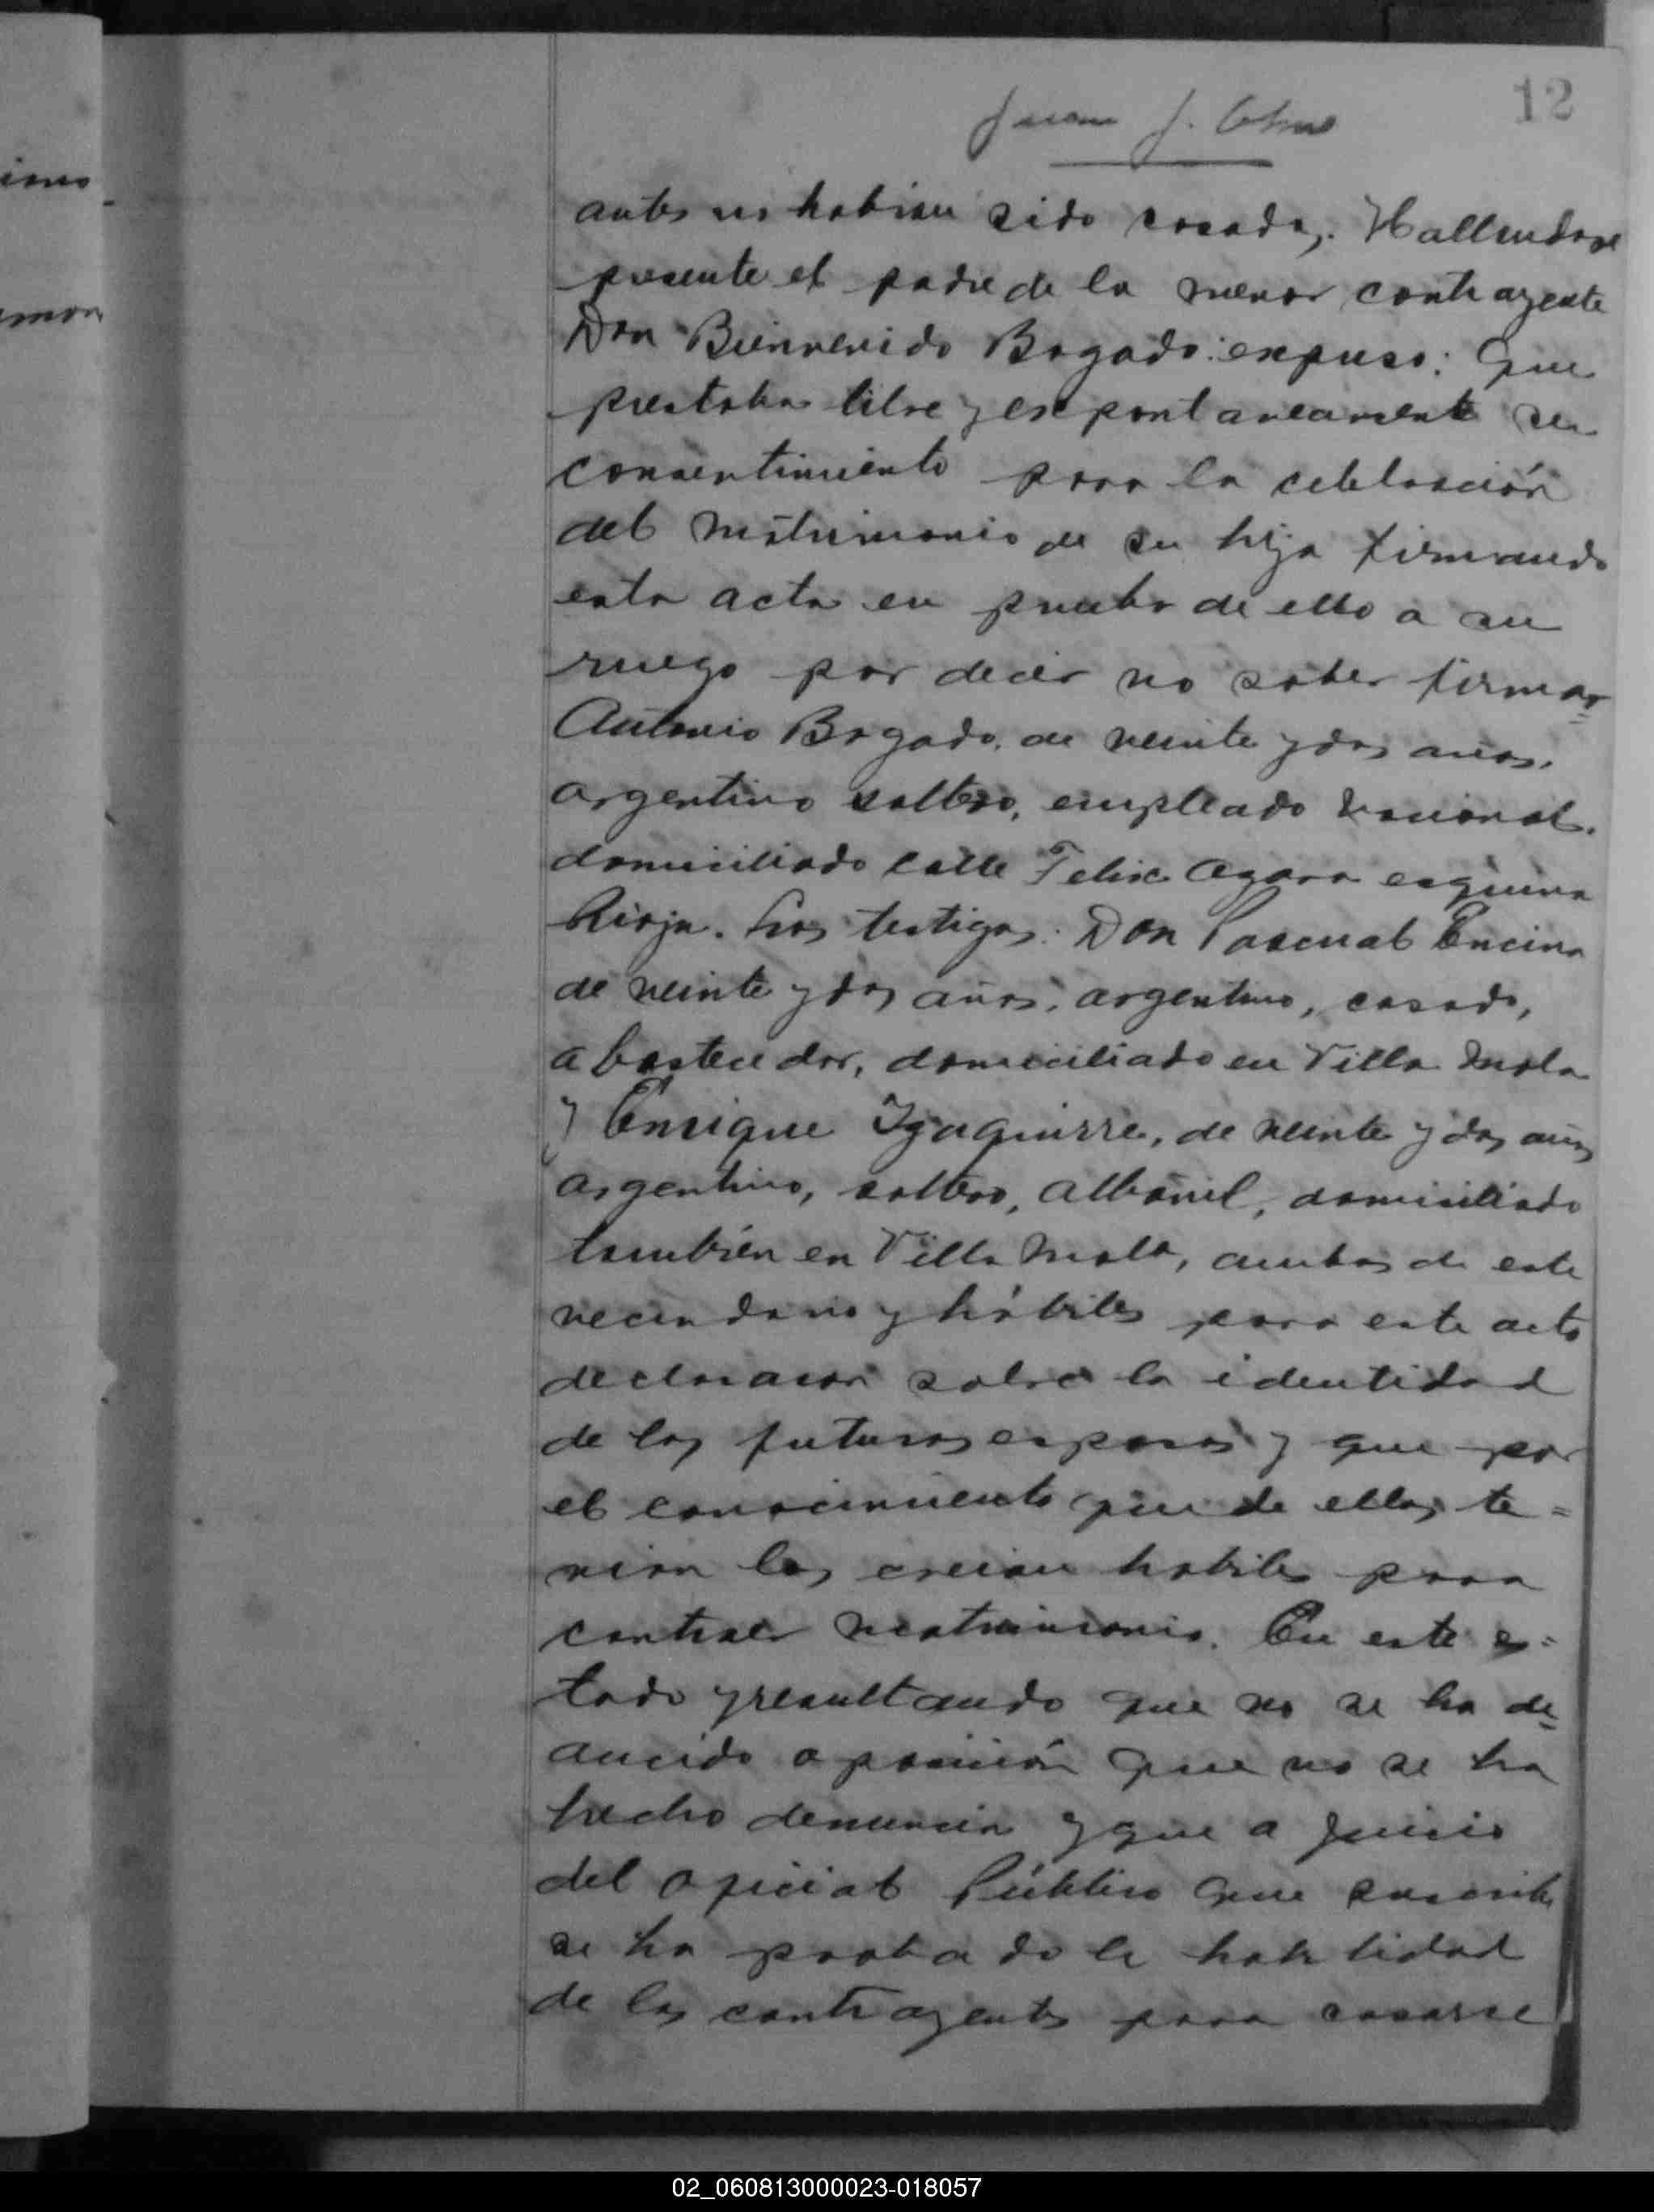 12
Juan J.
antes no habian sido casados. Hallandose
presente el padre de la menor contrayente
Don Bienvenido Bogado: expuso: Que
prestaba libre y espontaneamente su
consentimiento para la celebración
del matrimonio de su hija firmando
esta acta en prueba de ello a su
ruego por decir no saber firmar=
Antonio Bogado, de veinte y dos años,
argentino soltero, empleado nacional,
domiciliado calle Felix Azara esquina
Rioja. Los testigos: Don Pascual Encina
de veinte y dos años, argentino, casado,
abastecedor, domiciliado en Villa Mola
y Enrique Yzaguirre, de veinte y dos años
argentino, soltero, albañil, domiciliado
también en Villa Mola, ambos de este
vecindario y hábiles para este acto
declararon sobre la identidad
de los futuros esposos y que por
el conocimiento que de ellos te=
nian los creian habiles para
contraer matrimonio. En este es=
tado y resultando que no se ha de=
ducido oposición que no se ha
hecho denuncia y que a juicio
del oficial Público que suscribe
se ha probado la habilidad
de los contrayentes para casarse
iones
02_060813000023-018057